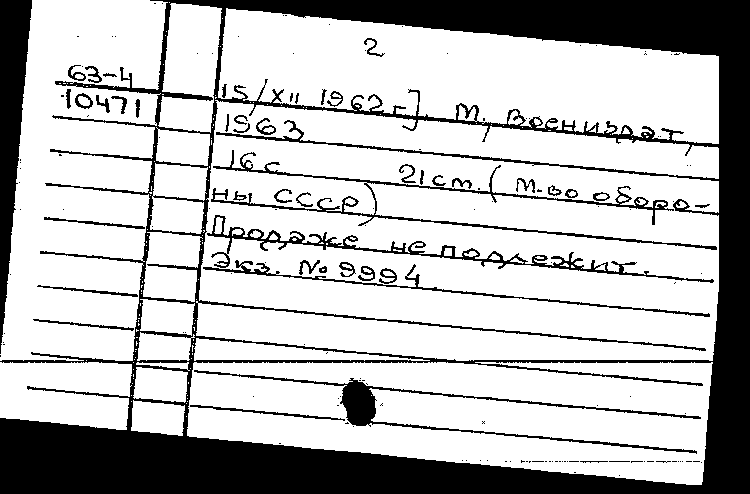 2
63-4
10471
15/XII 1962 г.]. М., Воениздат,
1963
16 с 21 см. (М-во оборо-
ны СССР)
Продаже не подлежит.
Экз. № 9994.